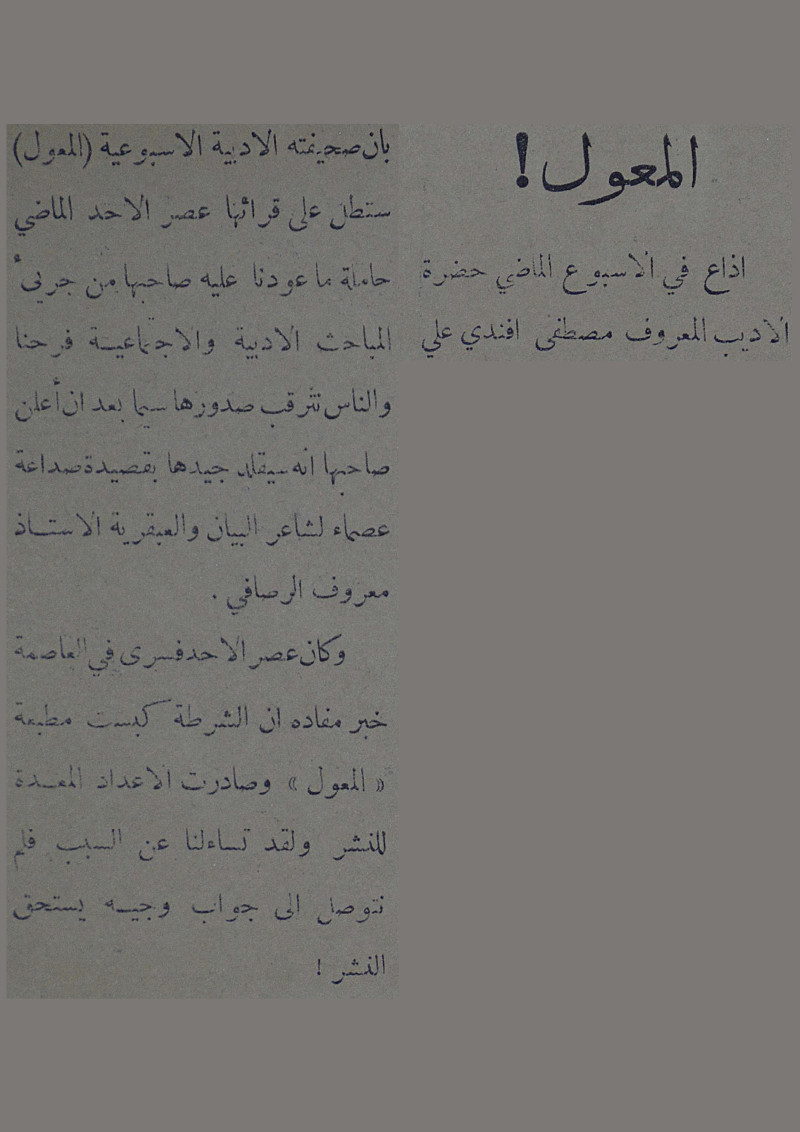 المعول !
اذاع في الاسبوع الماضي حضرة
الاديب المعروف مصطفى افندي علي
بان صحيفته الادبية الاسبوعية (المعول)
ستطل على قرائها عصر الاحد الماضي
حاملة ما عودنا عليه صاحبها من جريىء
المباحث الادبية والاجتماعيـة فرحنا
والناس نترقب صدورها سيما بعد ان أعلن
صاحبها انه سيقلد جيدها بقصيدة صداعة
عصماء لشاعر البيان والعبقرية الاستـاذ
معروف الرصافي .
وكان عصر الاحد فسرى في العاصمة
خبر مفاده ان الشرطة كبست مطبعة
« المعول » وصادرت الاعداد المعـدة
للنشر ولقد تساءلنا عن السبب فلم
نتوصل الى جواب وجيـه يستحق
النشر !